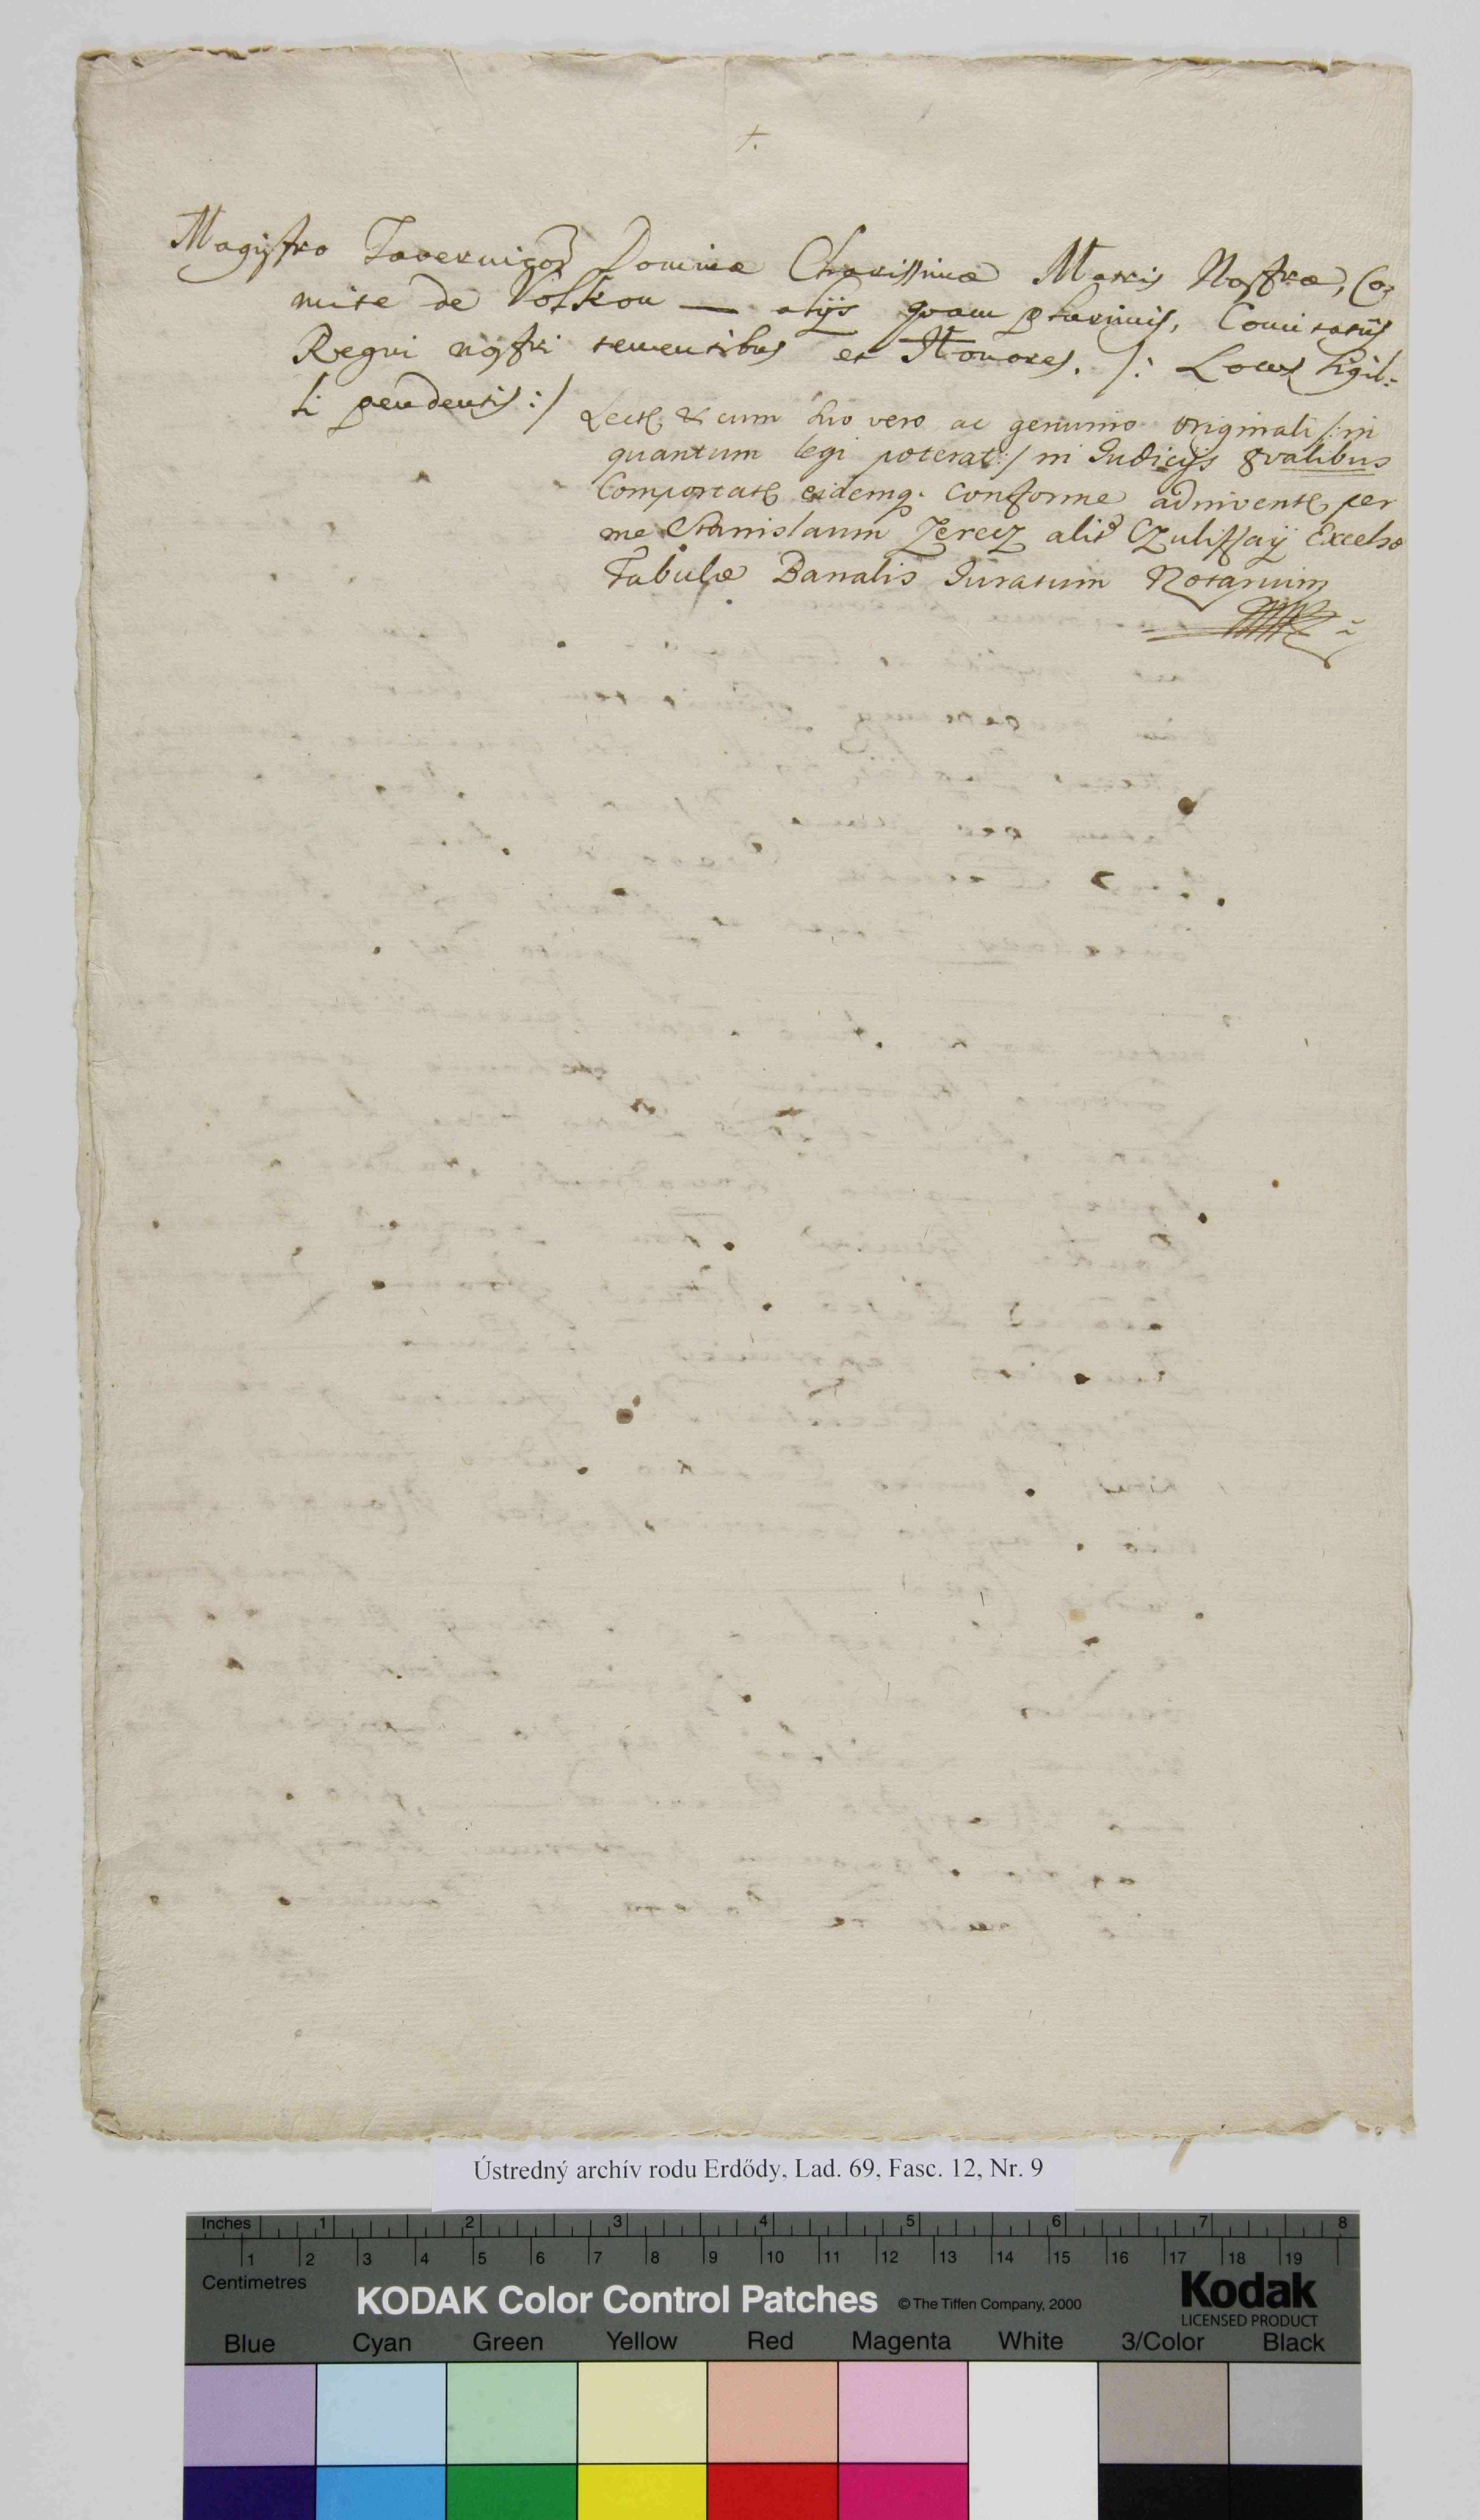 Magistro Tavernicor Dominæ Charissimæ Matris Nostræ, Co,
mite de Volkou — alijs quam plurimis, Comitatus
Regni nostri tenentibus et Honores. /: Locus sigil:
li pendentis :/
Lect & cum suo vero ac genuino originali /: in
quantum legi poterat :/ in Judicijs gralibus
Comportat eidemq. conforme advinent per
me Stanislaum Zerecz alis Czulissaÿ Excelsæ
Tabulæ Banalis Juratum Notarium
Ústredný archív rodu Erdődy, Lad. 69, Fasc. 12, Nr. 9
Inches 1 2 3 4 5 6 7 8
1 2 3 4 5 6 7 8 9 10 11 12 13 14 15 16 17 18 19
Centimetres
KODAK Color Control Patches © The Tiffen Company, 2000
Kodak
LICENSED PRODUCT
Blue Cyan Green Yellow Red Magenta White 3/Color Black